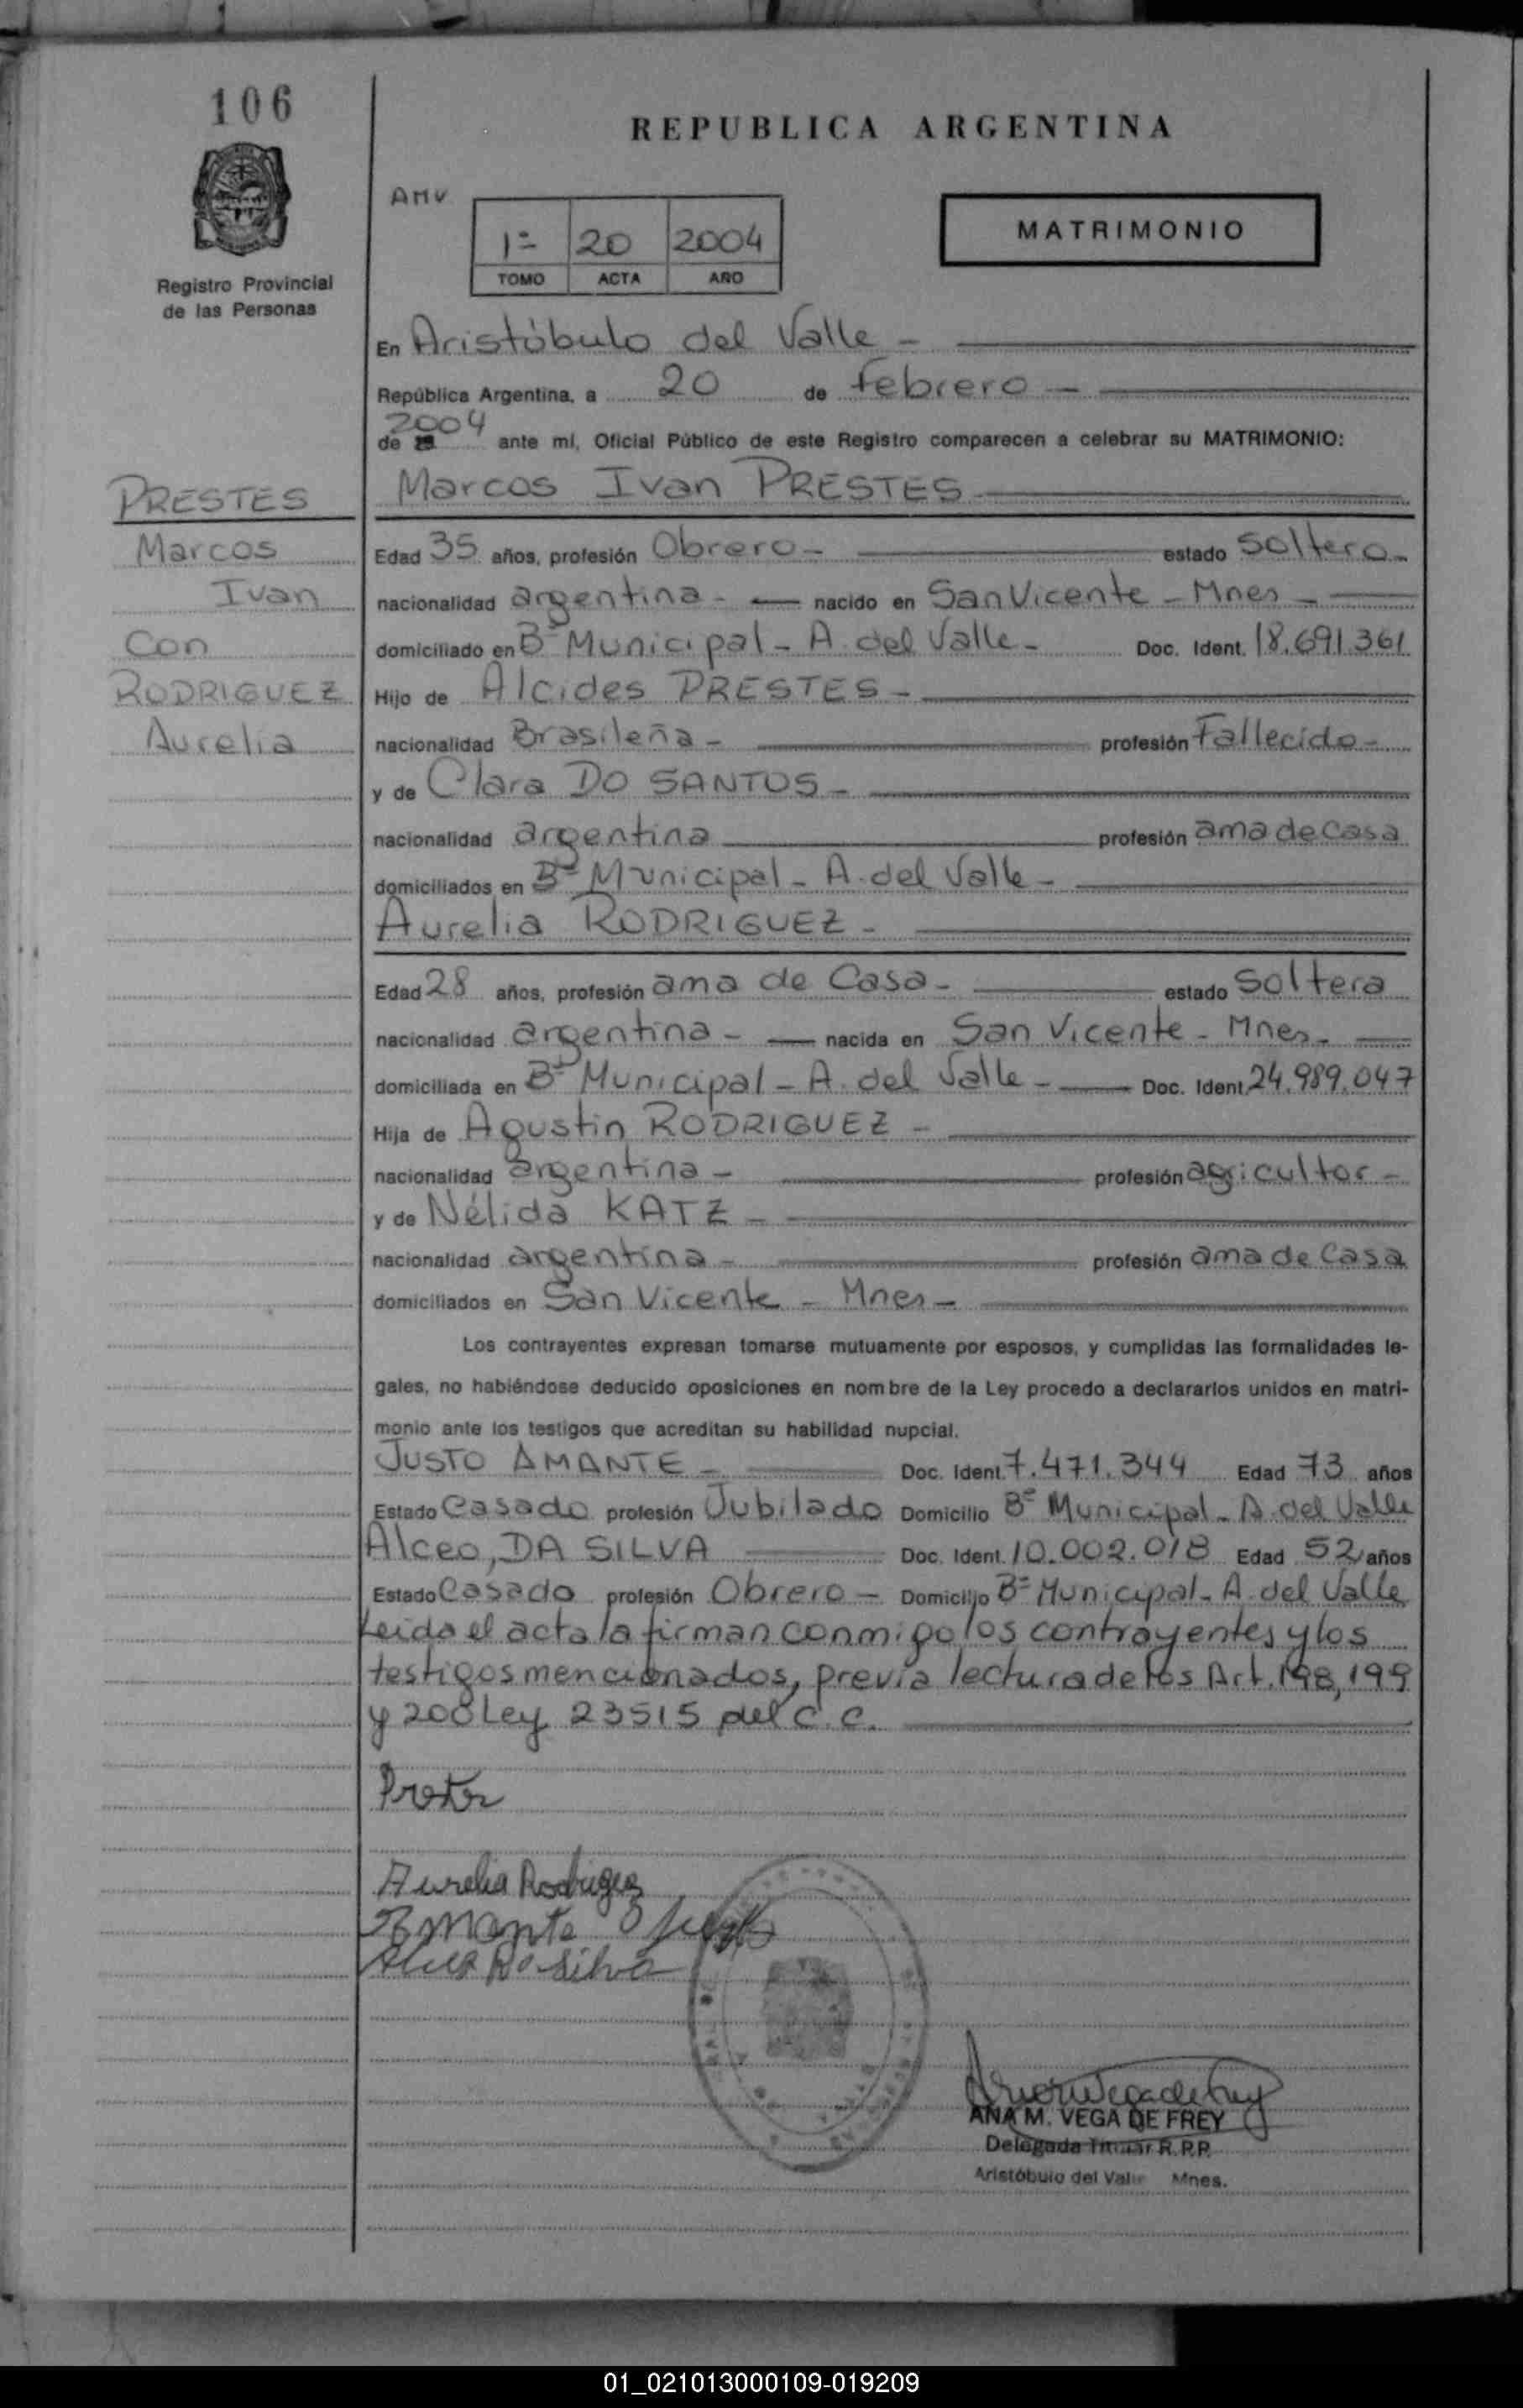 106
REPUBLICA ARGENTINA
AMV
1º 20 2004
TOMO ACTA AÑO
MATRIMONIO
Registro Provincial
de las Personas
En Aristóbulo del Valle -
República Argentina, a 20 de Febrero -
2004
de 19 ante mí, Oficial Público de este Registro comparecen a celebrar su MATRIMONIO:
PRESTES
Marcos
Ivan
Con
RODRIGUEZ
Aurelia
Marcos Ivan PRESTES
Edad 35 años, profesión Obrero - estado Soltero -
nacionalidad argentina - nacido en San Vicente - Mnes -
domiciliado en Bº Municipal - A. del Valle - Doc. Ident. 18.691.361
Hijo de Alcides PRESTES -
nacionalidad Brasileña - profesión Fallecido -
y de Clara DO SANTOS -
nacionalidad argentina profesión ama de casa
domiciliados en Bº Municipal - A. del Valle -
Aurelia RODRIGUEZ -
Edad 28 años, profesión ama de Casa - estado Soltera
nacionalidad argentina - nacida en San Vicente - Mnes -
domiciliada en Bº Municipal - A. del Valle - Doc. Ident. 24.989.047
Hija de Agustin RODRIGUEZ -
nacionalidad argentina - profesión agricultor -
y de Nélida KATZ -
nacionalidad argentina - profesión ama de Casa
domiciliados en San Vicente - Mnes -
Los contrayentes expresan tomarse mutuamente por esposos, y cumplidas las formalidades le-
gales, no habiéndose deducido oposiciones en nombre de la Ley procedo a declararlos unidos en matri-
monio ante los testigos que acreditan su habilidad nupcial.
JUSTO AMANTE - Doc. Ident. 7.471.344 Edad 73 años
Estado Casado profesión Jubilado Domicilio Bº Municipal - A. del Valle
Alceo, DA SILVA Doc. Ident. 10.002.018 Edad 52 años
Estado Casado profesión Obrero - Domicilio Bº Municipal - A. del Valle
Leida el acta la firman conmigo los contrayentes y los
testigos mencionados, previa lectura de los Art. 198, 199
y 200 Ley 23515 del C. C.
Aurelia Rodriguez
Amante
Da Silva
ANA M. VEGA DE FREY
Delegada Titular R.P.P.
Aristóbulo del Valle Mnes.
01_021013000109-019209